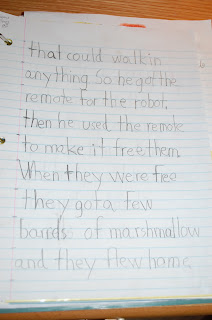 that could walk in
anything So he got the
remote for the robot,
then he used the remote
to make it free them.
When they were free
they got a few
barrels of marshmallow
and they flew home